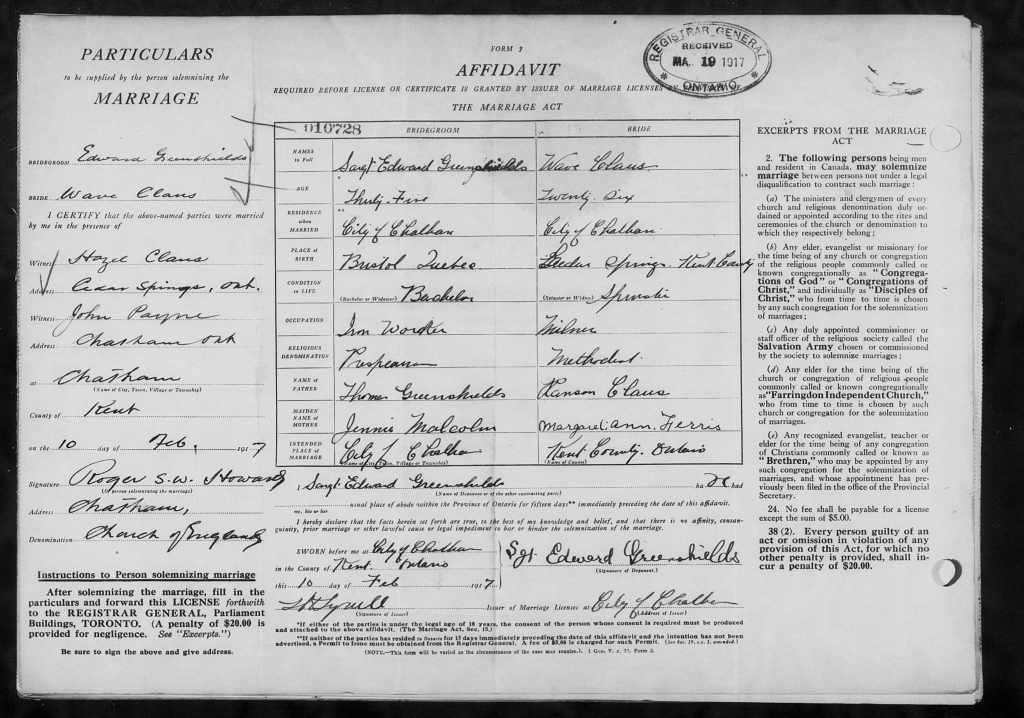 PARTICULARS
to be supplied by the person solemnizing the
MARRIAGE
BRIDEGROOM Edward Greenshields
BRIDE Wave Claus
I CERTIFY that the above-named parties were married
by me in the presence of
Witness Hazel Claus
Address Cedar Springs, Ont.
Witness John Payne
Address Chatham Ont
at Chatham
(Name of City, Town, Village or Township)
County of Kent
on the 10 day of Feb, 1917
Signature Roger S.W. Howard
(Of person solemnizing the marriage)
Address Chatham,
Denomination Church of England
Instructions to Person solemnizing marriage
After solemnizing the marriage, fill in the
particulars and forward this LICENSE forthwith
to the REGISTRAR GENERAL, Parliament
Buildings, TORONTO. (A penalty of $20.00 is
provided for negligence. See "Excerpts.")
Be sure to sign the above and give address.
FORM 3
AFFIDAVIT
REQUIRED BEFORE LICENSE OR CERTIFICATE IS GRANTED BY ISSUER OF MARRIAGE LICENSES
THE MARRIAGE ACT
REGISTRAR GENERAL
RECEIVED
MA. 19 1917
ONTARIO
010728 BRIDEGROOM BRIDE
NAMES in Full Sargt Edward Greenshields Wave Claus
AGE Thirty Five Twenty Six
RESIDENCE when MARRIED City of Chatham City of Chatham
PLACE of BIRTH Bristol Quebec Ceedar Springs Kent County
CONDITION in LIFE (Bachelor or Widower) Bachelor (Spinster or Widow) Spinster
OCCUPATION Iron Worker Milner
RELIGIOUS DENOMINATION Methodist
NAME of FATHER Thomas Greenshields Ranson Claus
MAIDEN NAME of MOTHER Jennie Malcolm Margaret Ann Ferris
INTENDED PLACE of MARRIAGE City of Chatham Kent County Ontario
(Name of City, Town, Village or Township) (Name of County)
I, Sargt Edward Greenshields ha had
(Name of Deponent or of the other contracting party)
usual place of abode within the Province of Ontario for fifteen days** immediately preceding the date of this affidavit.
me, his or her
I hereby declare that the facts herein set forth are true, to the best of my knowledge and belief, and that there is no affinity, consan-
guinity, prior marriage or other lawful cause or legal impediment to bar or hinder the solemnization of the marriage.
SWORN before me at City of Chatham
in the County of Kent Ontario
this 10 day of Feb 1917.
Sgt Edward Greenshields
(Signature of Deponent.)
(Signature of Issuer) Issuer of Marriage Licenses at City of Chatham
(Address of Issuer)
*If either of the parties is under the legal age of 18 years, the consent of the person whose consent is required must be produced
and attached to the above affidavit. (The Marriage Act, Sec. 15.)
**If neither of the parties has resided in Ontario for 15 days immediately preceding the date of this affidavit and the intention has not been
advertised, a Permit to Issue must be obtained from the Registrar General. A fee of $5.00 is charged for such Permit. (See Sec. 19, s.s. 1, amended.)
(NOTE.—This form will be varied as the circumstances of the case may require.). 1 Geo. V. c. 32, Form 3.
EXCERPTS FROM THE MARRIAGE
ACT
2. The following persons being men
and resident in Canada, may solemnize
marriage between persons not under a legal
disqualification to contract such marriage:
(a) The ministers and clergymen of every
church and religious denomination duly or-
dained or appointed according to the rites and
ceremonies of the church or denomination to
which they respectively belong;
(b) Any elder, evangelist or missionary for
the time being of any church or congregation
of the religious people commonly called or
known congregationally as "Congrega-
tions of God" or "Congregations of
Christ," and individually as "Disciples of
Christ," who from time to time is chosen by
any such congregation for the solemnization
of marriages;
(c) Any duly appointed commissioner or
staff officer of the religious society called the
Salvation Army chosen or commissioned
by the society to solemnize marriages;
(d) Any elder for the time being of the
church or congregation of religious people
commonly called or known congregationally
as "Farringdon Independent Church,"
who from time to time is chosen by such
church or congregation for the solemnization
of marriages.
(e) Any recognized evangelist, teacher or
elder for the time being of any congregation
of Christians commonly called or known as
"Brethren," who may be appointed by any
such congregation for the solemnization of
marriages, and whose appointment has pre-
viously been filed in the office of the Provincial
Secretary.
24. No fee shall be payable for a license
except the sum of $5.00.
38 (2). Every person guilty of an
act or omission in violation of any
provision of this Act, for which no
other penalty is provided, shall in-
cur a penalty of $20.00.